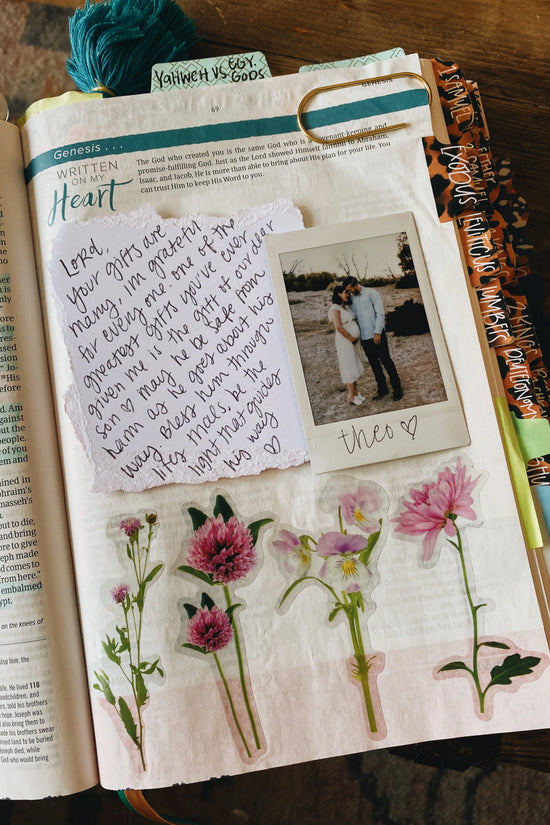 YAHWEH VS EGY.
GODS
69
GENESIS
Genesis . . .
WRITTEN
ON MY
Heart
The God who created you is the same God who is a covenant-keeping and
promise-fulfilling God. Just as the Lord showed Himself faithful to Abraham,
Isaac, and Jacob, He is more than able to bring about His plan for your life. You
can trust Him to keep His Word to you.
Lord,
Your gifts are
many, I'm grateful
for every one. one of the
greatest gifts you've ever
given me is the gift of our dear
son ♡ may he be safe from
harm as he goes about his
way. Bless him through
life's trials, be the
light that guides
his way ♡
theo ♡
I SAMUEL
EXODUS
LEVITICUS
NUMBERS
DEUTERONOMY
"His
before
ad. Am
against
the
people.
em and
ained in
phraim's
nasseh's
out to die,
and bring
ore to give
eph made
nd comes to
from here."
embalmed
ypt.
on the knees of
stop him, the
life. He lived 110
andchildren, and
, told his brothers
hope. Joseph was
also bring them to
made his brothers swear
mised land to be buried
Joseph died, while
God who would bring